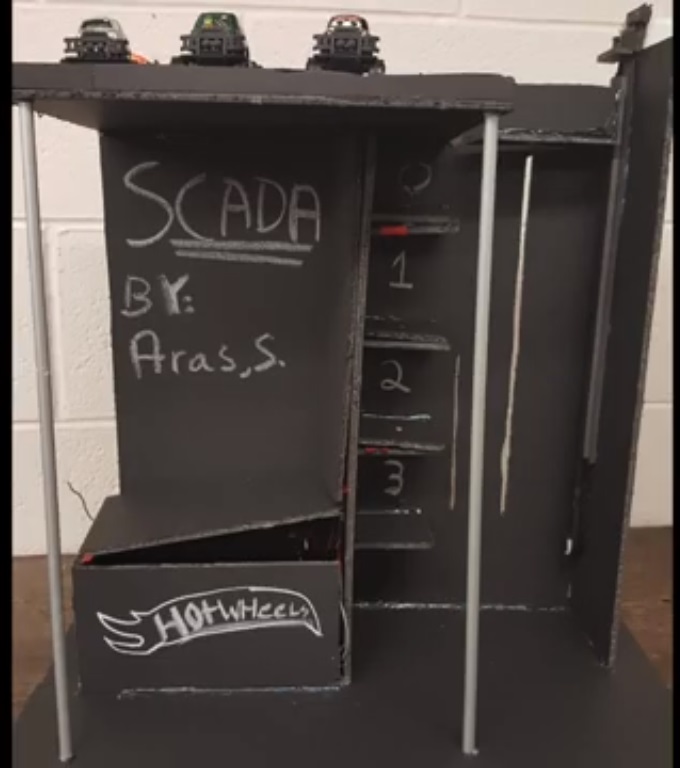 SCADA
BY:
Aras,S.
1
2
3
HOTWHEELS